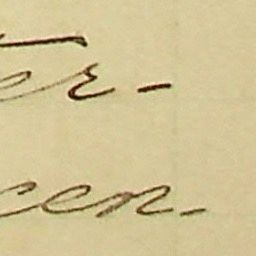 ter-
cen-